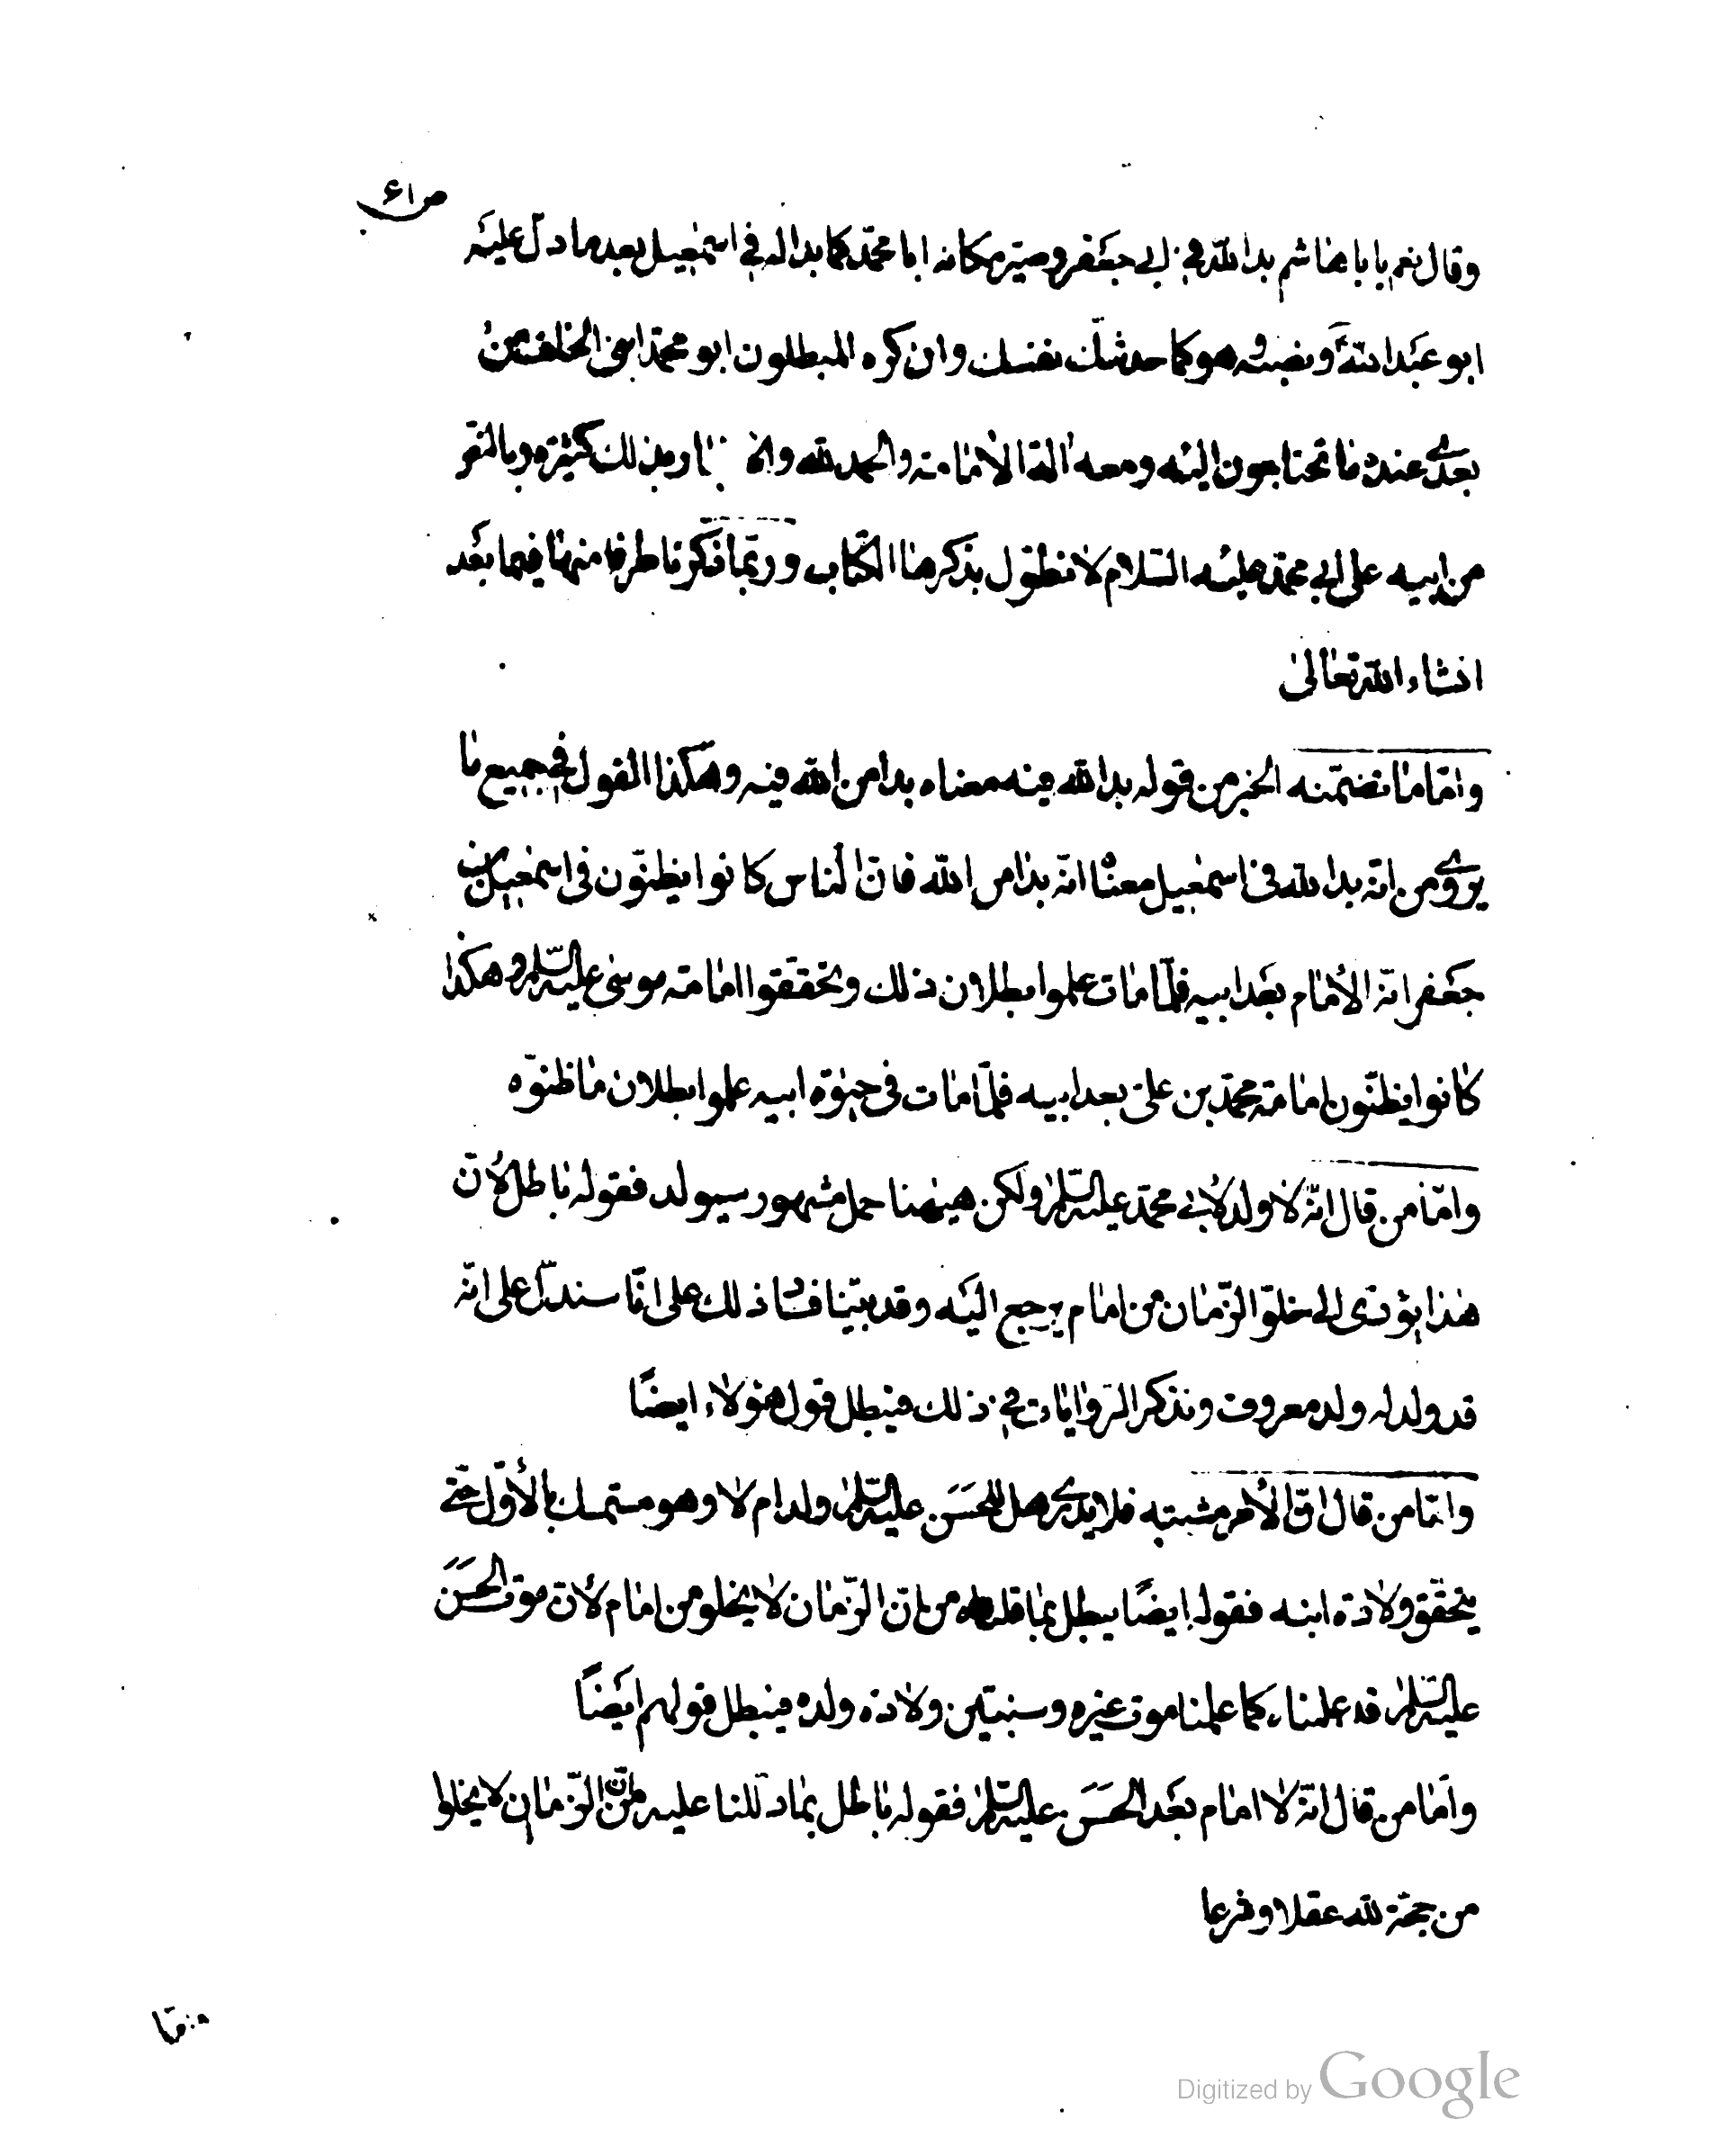 ص ٦١
وقال نعم يا با هاشم بدا لله في ابي جعفر وصير مكانه ابا محمد كما بدا له في اسمعيل بعد ما دل عليه
ابو عبد الله ونصبه وهو كما حدثتك نفسك وان كره المبطلون ابو محمد ابني الخلف من
بعدي عنده ما تحتاجون اليه ومعه الة الامامة والحمد لله والاخبار بذلك كثيرة وبالنص
من ابيه على ابي محمد عليه السلام لا نطول بذكرها الكتاب وربما ذكرنا طرفا منها فيما بعد
انشاء الله تعالى
واما ما تضمنه الخبر من قوله بدا لله فيه معناه بدا من الله فيه وهكذا القول في جميع ما
يروى من انه بدا لله في اسمعيل معناه انه بدا من الله فان الناس كانوا يظنون في اسمعيل بن
جعفر انه الامام بعد ابيه فلما مات علموا بطلان ذلك وتحققوا امامة موسى عليه السلم وهكذا
كانوا يظنون امامة محمد بن علي بعد ابيه فلما مات في حيوة ابيه علموا بطلان ما ظنوه
واما من قال انه لا ولد لابي محمد عليه السلم ولكن هيهنا حمل مشهور سيولد فقوله باطل لان
هذا يؤدى الى خلو الزمان من امام يرجع اليه وقد بينا فساد ذلك على انا سندل على انه
قد ولد له ولد معروف ونذكر الروايات في ذلك فيبطل قول هؤلاء ايضا
واما من قال ان الامر مشتبه فلا يدرى هل للحسن عليه السلم ولد ام لا وهو مستمسك بالاول حتى
يتحقق ولادة ابنه فقوله ايضا يبطل بما قلناه من ان الزمان لا يخلو من امام لان موت الحسن
عليه السلم قد علمناه كما علمنا موت غيره وسنبين ولادة ولده فيبطل قولهم ايضا
واما من قال انه لا امام بعد الحسن عليه السلم فقوله باطل بما دللنا عليه من ان الزمان لا يخلوا
من حجة لله عقلا وشرعا
Digitized by Google